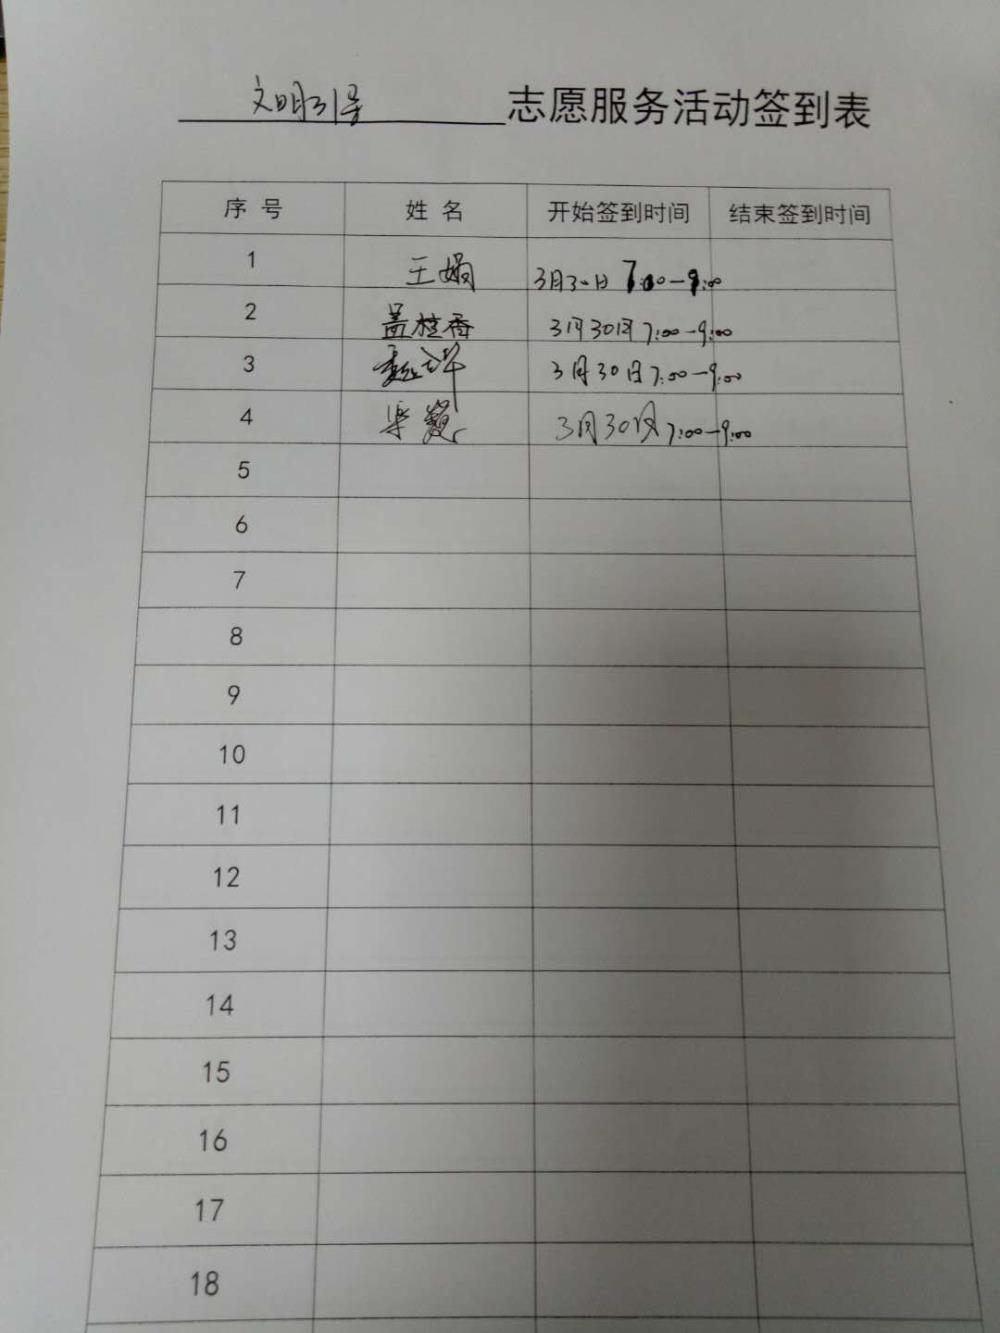 文明引导 志愿服务活动签到表
序号 姓名 开始签到时间 结束签到时间
1 王娟 3月30日 7:00-9:00
2 盖桂香 3月30日 7:00-9:00
3 3月30日 7:00-9:00
4 梁巍 3月30日 7:00-9:00
5
6
7
8
9
10
11
12
13
14
15
16
17
18